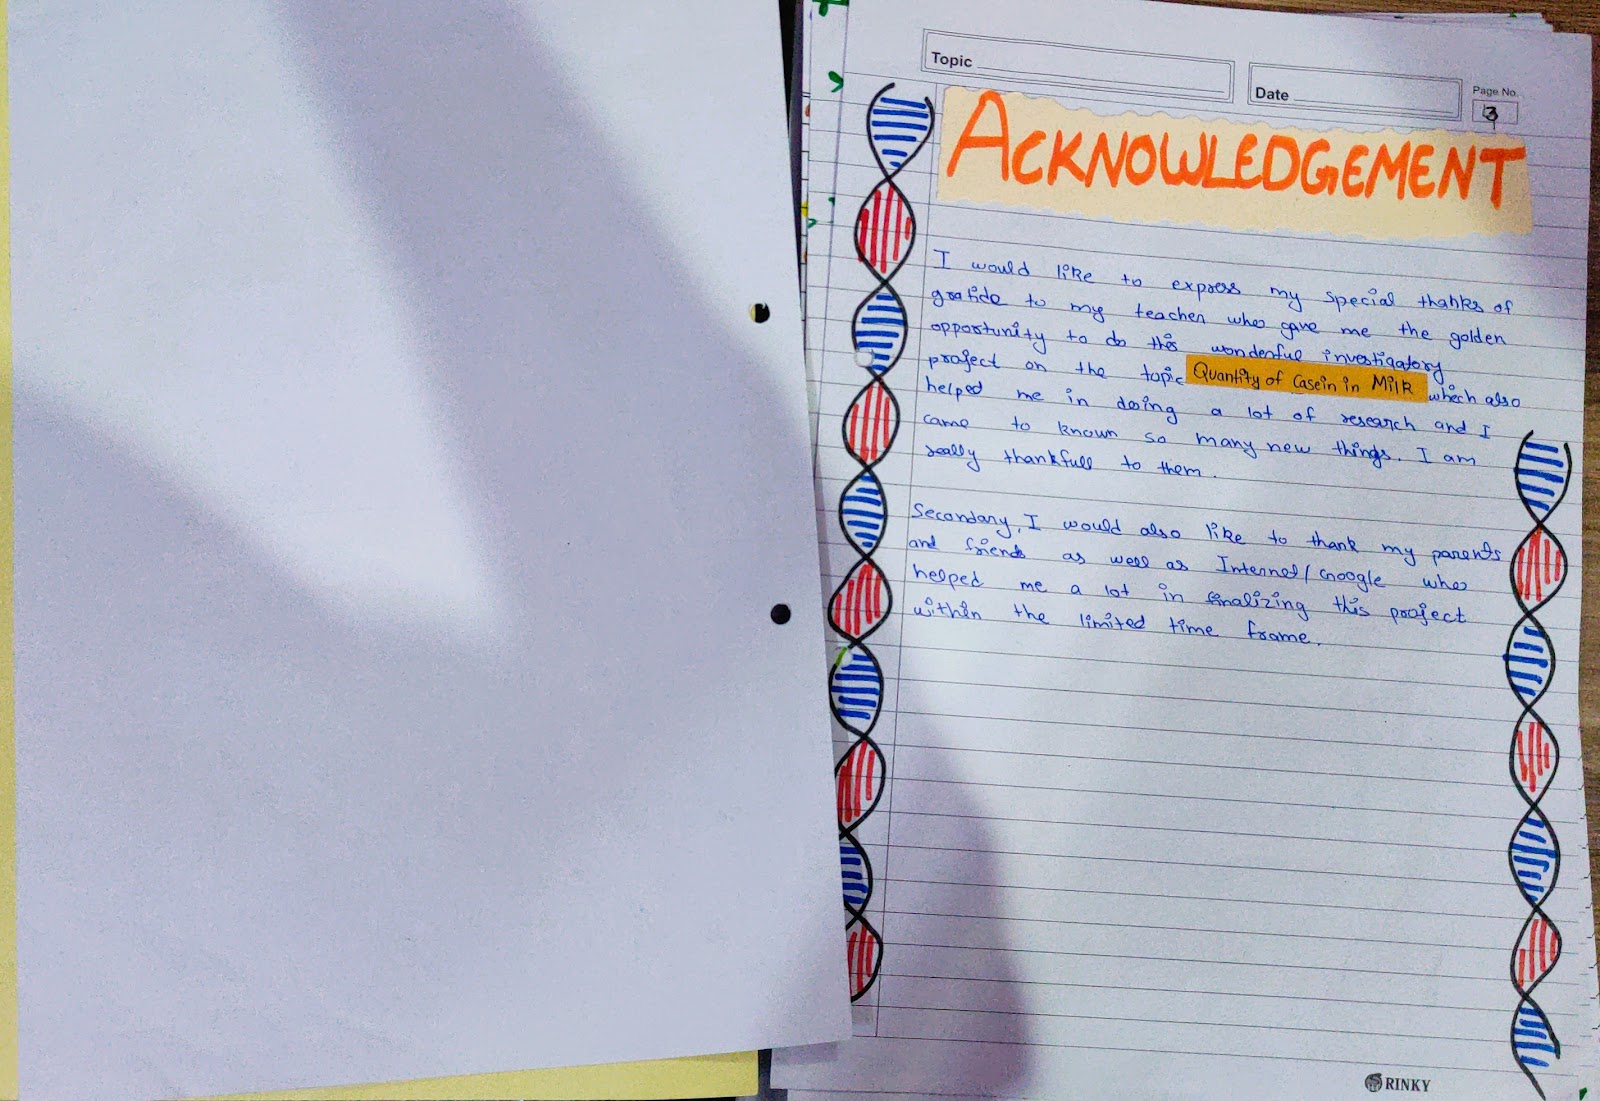 Topic
Date
Page No.
3
ACKNOWLEDGEMENT
I would like to express my special thanks of
gratide to my teacher who gave me the golden
opportunity to do this wonderful investigatory
project on the topic Quantity of Casein in Milk which also
helped me in doing a lot of research and I
came to known so many new things. I am
really thankfull to them.
Secondary, I would also like to thank my parents
and friends as well as Internel/Google who
helped me a lot in finalizing this project
within the limited time frame.
RINKY